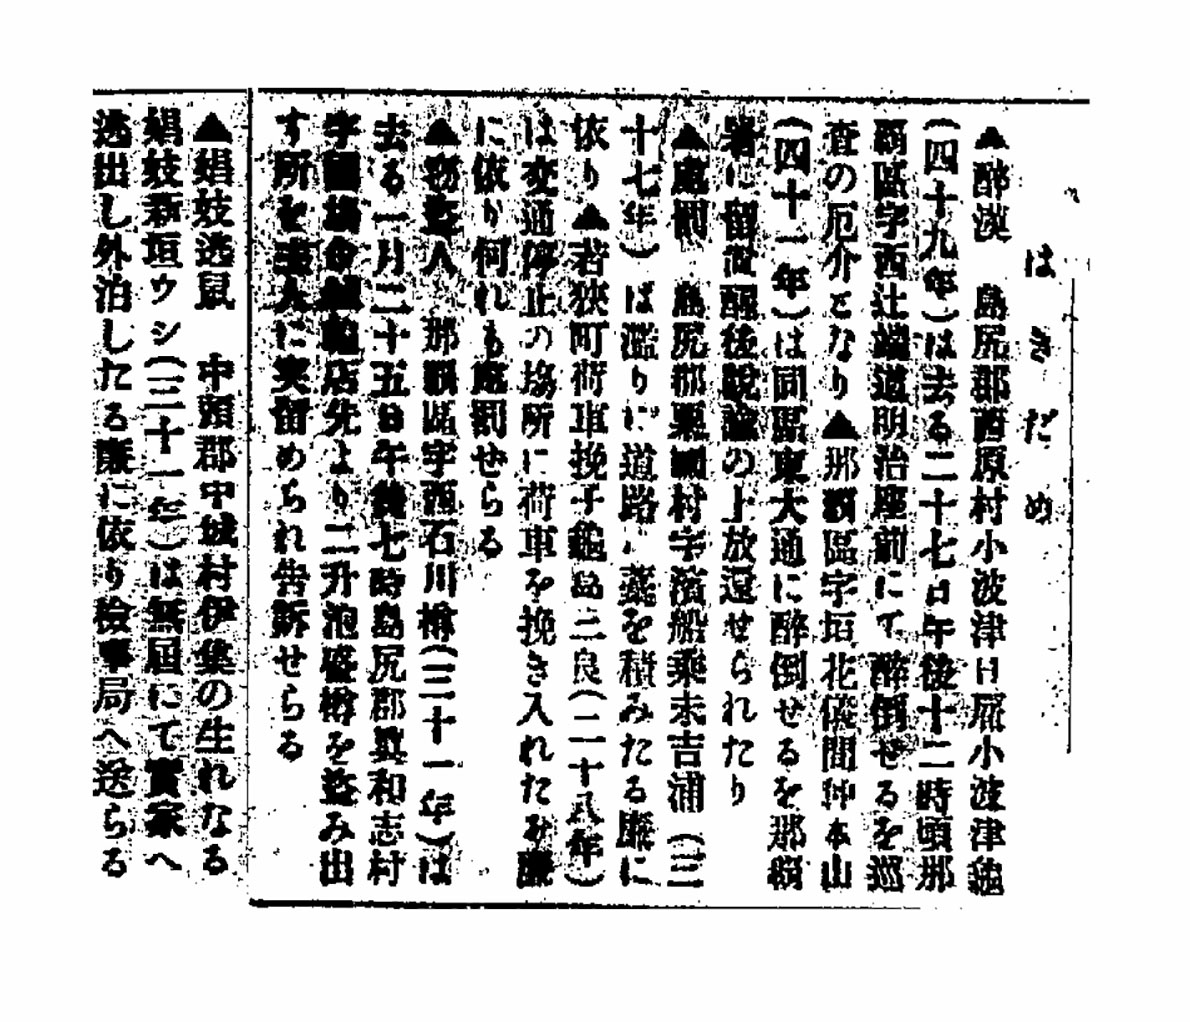 はきだめ
▲酔漢　島尻郡西原村小波津日屋小波津龜
(四十九年)は去る二十七日午後十二時頃那
覇區字西辻端道明治座前にて酔倒せるを巡
査の厄介となり▲那覇區字垣花儀間仲本山
(四十一年)は同區東大通に酔倒せるを那覇
署に留置醒後説諭の上放還せられたり
▲處罰　島尻郡粟國村字濱船乗末吉浦(三
十七年)は濫りに道路に薪を積みたる廉に
依り▲若狭町荷車挽子龜島三良(二十八年)
は交通停止の塲所に荷車を挽き入れたる廉
に依り何れも處罰せらる
▲窃盗人　那覇區字西石川樽(三十一年)は
去る一月二十五日午後七時島尻郡眞和志村
字國塲 店先より二升泡盛樽を盗み出
す所を主人に突留められ告訴せらる
▲娼妓逃鼠　中頭郡中城村伊集の生れなる
娼妓新垣ウシ(三十一年)は無届にて實家へ
逃出し外泊したる廉に依り檢事局へ送らる